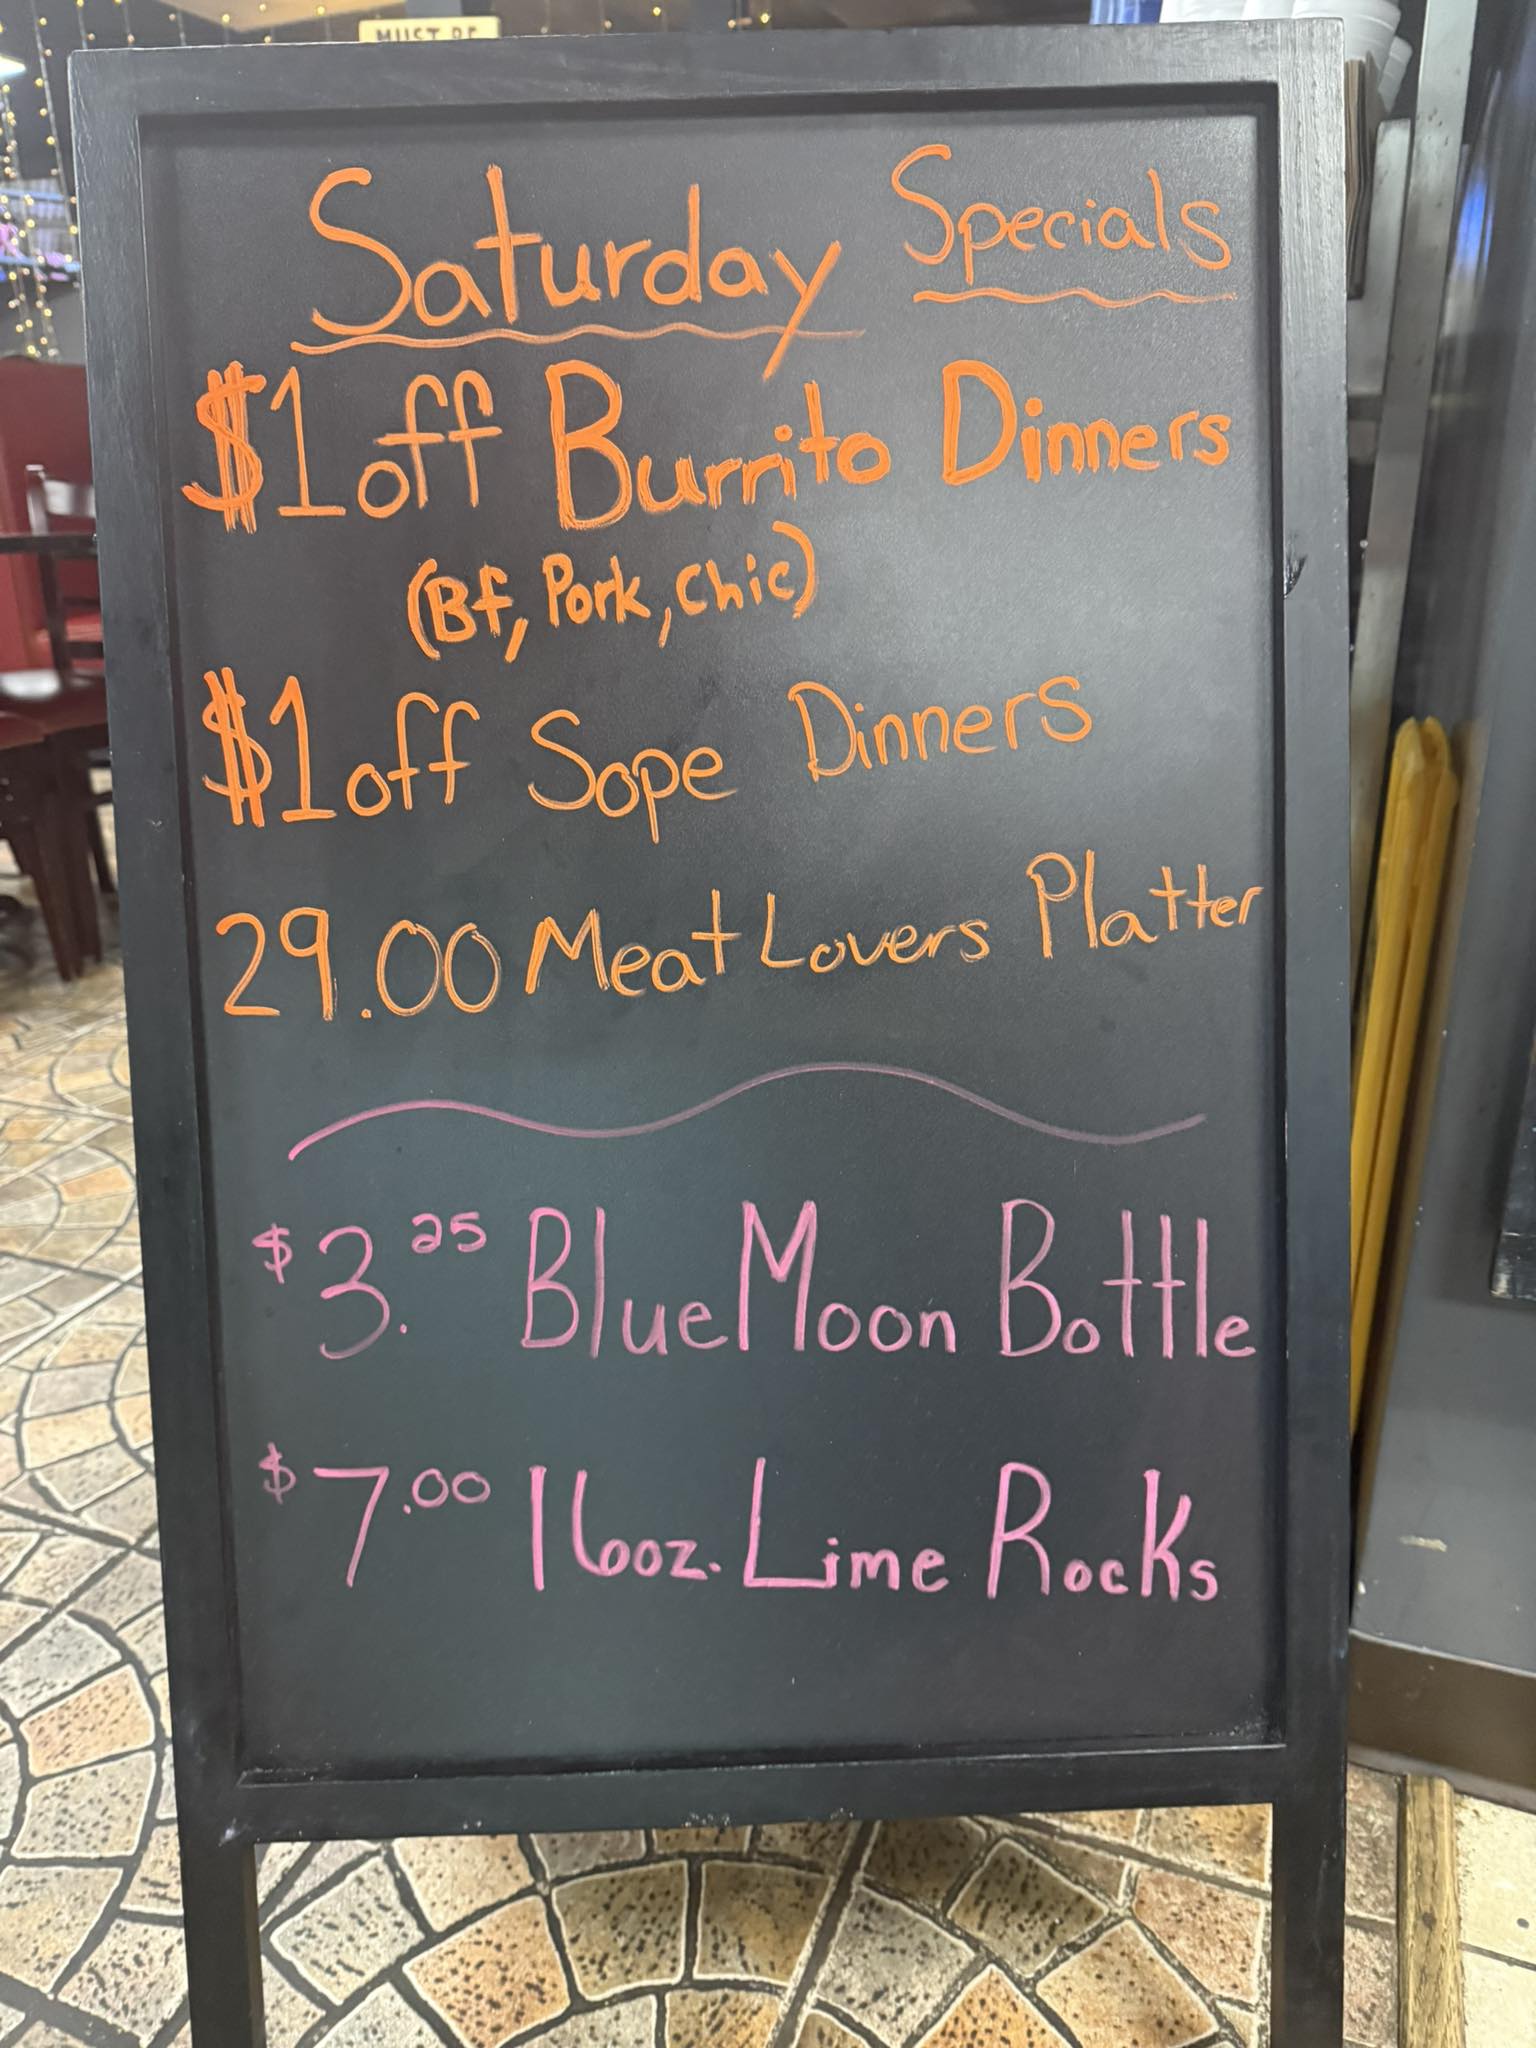 MUST BE
Saturday Specials
$1 off Burrito Dinners
(Bf, Pork, Chic)
$1 off Sope Dinners
29.00 Meat Lovers Platter
$3.25 Blue Moon Bottle
$7.00 16oz. Lime Rocks